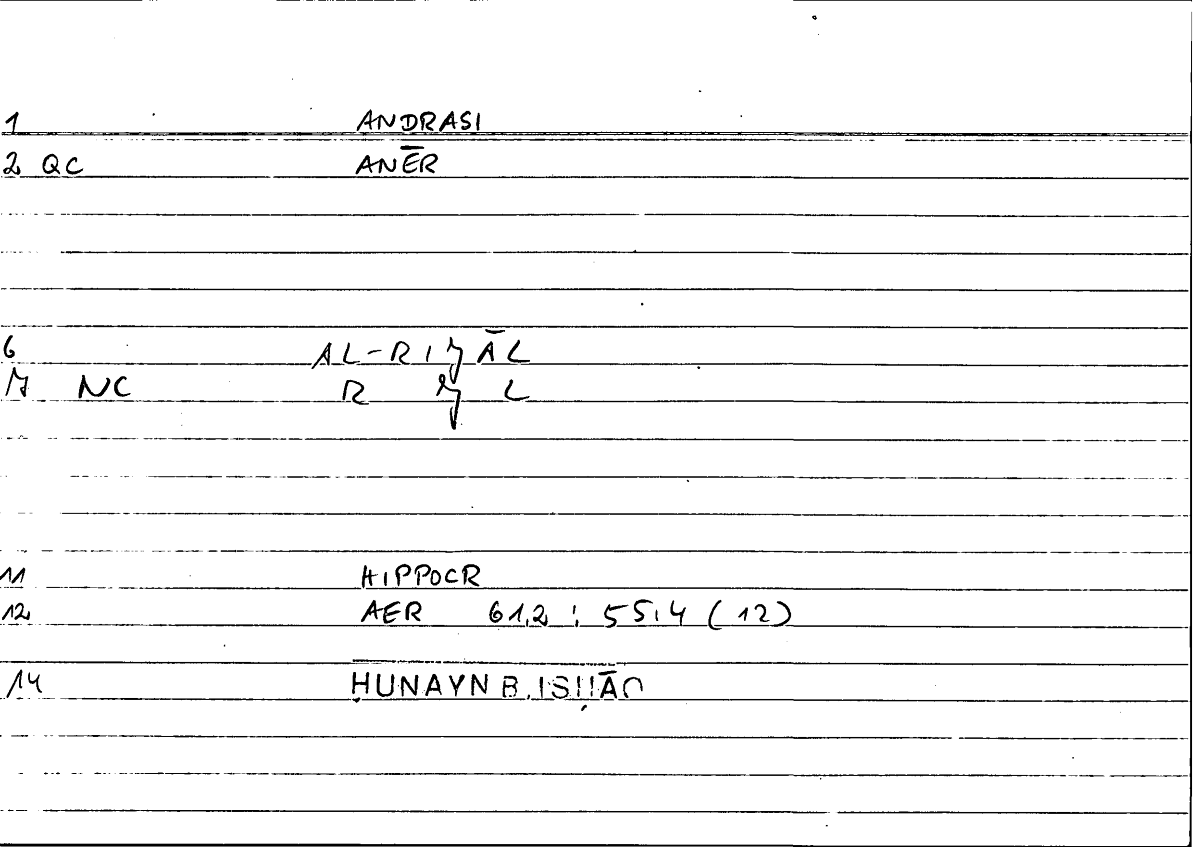 1 ANDRASI
2 QC ANĒR
6 AL-RIǧĀL
7 NC R ǧ L
11 HIPPOCR
12 AER 61,2 : 55,4 (12)
14 ḤUNAYN B. ISḤĀQ